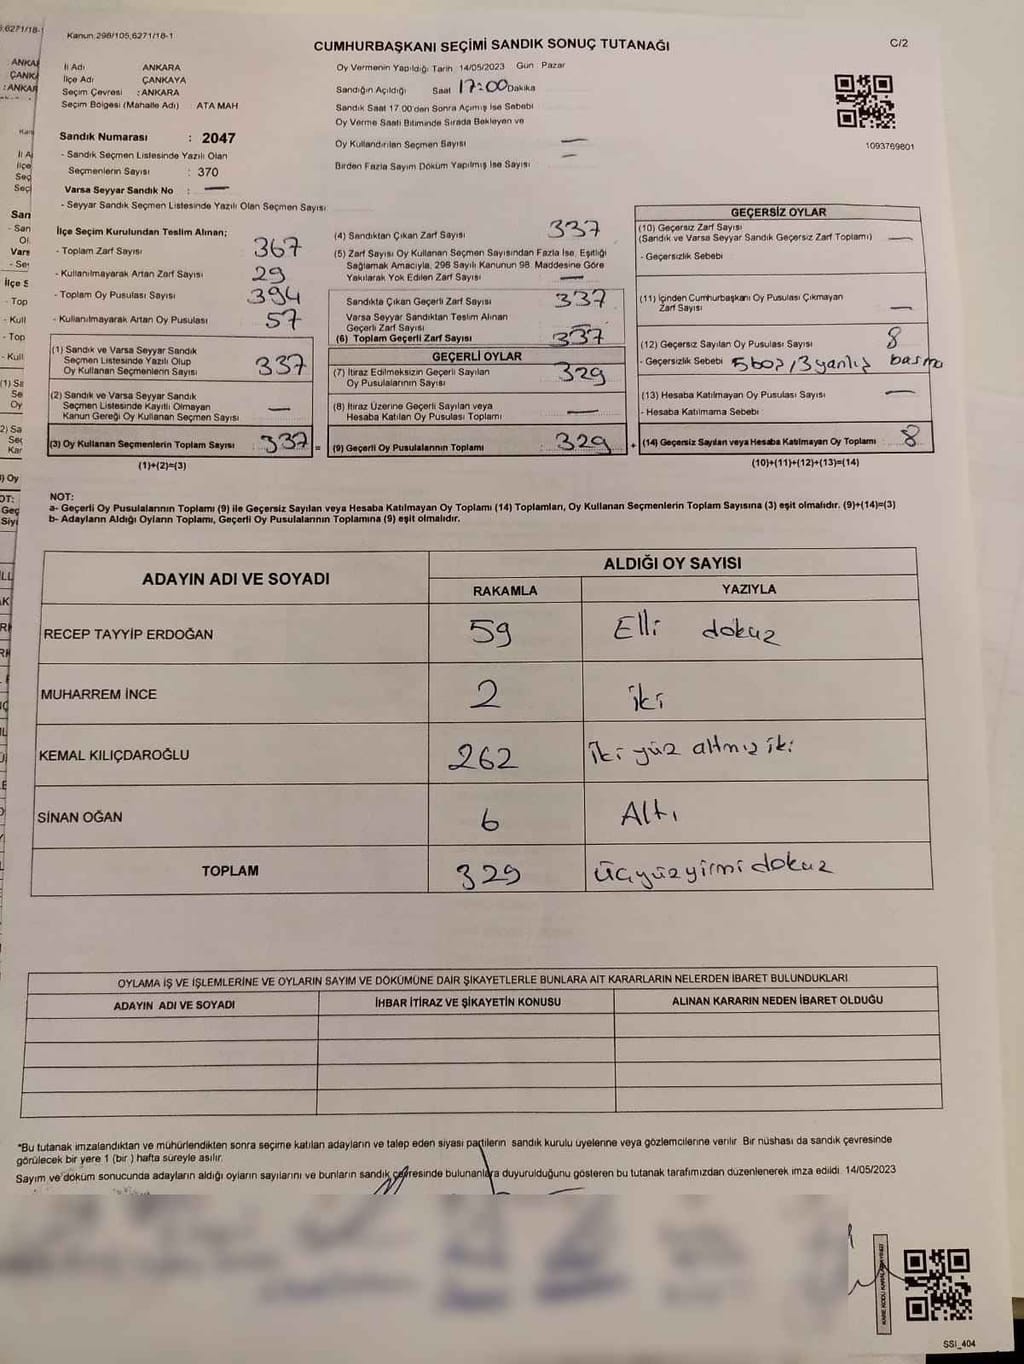 5,6271/18-1
Kanun:298/105,6271/18-1
CUMHURBAŞKANI SEÇİMİ SANDIK SONUÇ TUTANAĞI
C/2
İl Adı ANKARA
İlçe Adı ÇANKAYA
Seçim Çevresi : ANKARA
Seçim Bölgesi (Mahalle Adı) ATA MAH
Oy Vermenin Yapıldığı Tarih 14/05/2023 Gün : Pazar
Sandığın Açıldığı Saat 17:00 Dakika
Sandık Saat 17.00'den Sonra Açımış İse Sebebi
Oy Verme Saati Bitiminde Sırada Bekleyen ve
Oy Kullandırılan Seçmen Sayısı —
Birden Fazla Sayım Döküm Yapılmış İse Sayısı —
1093769801
Sandık Numarası : 2047
- Sandık Seçmen Listesinde Yazılı Olan
Seçmenlerin Sayısı : 370
Varsa Seyyar Sandık No : —
- Seyyar Sandık Seçmen Listesinde Yazılı Olan Seçmen Sayısı
İlçe Seçim Kurulundan Teslim Alınan;
- Toplam Zarf Sayısı 367
- Kullanılmayarak Artan Zarf Sayısı 29
- Toplam Oy Pusulası Sayısı 394
- Kullanılmayarak Artan Oy Pusulası 57
(1) Sandık ve Varsa Seyyar Sandık
Seçmen Listesinde Yazılı Olup
Oy Kullanan Seçmenlerin Sayısı 337
(2) Sandık ve Varsa Seyyar Sandık
Seçmen Listesinde Kayıtlı Olmayan
Kanun Gereği Oy Kullanan Seçmen Sayısı —
(3) Oy Kullanan Seçmenlerin Toplam Sayısı 337 =
(1)+(2)=(3)
(4) Sandıktan Çıkan Zarf Sayısı 337
(5) Zarf Sayısı Oy Kullanan Seçmen Sayısından Fazla İse, Eşitliği
Sağlamak Amacıyla, 298 Sayılı Kanunun 98. Maddesine Göre
Yakılarak Yok Edilen Zarf Sayısı —
Sandıkta Çıkan Geçerli Zarf Sayısı 337
Varsa Seyyar Sandıktan Teslim Alınan
Geçerli Zarf Sayısı —
(6) Toplam Geçerli Zarf Sayısı 337
GEÇERLİ OYLAR
(7) İtiraz Edilmeksizin Geçerli Sayılan
Oy Pusulalarının Sayısı 329
(8) İtiraz Üzerine Geçerli Sayılan veya
Hesaba Katılan Oy Pusulası Toplamı —
(9) Geçerli Oy Pusulalarının Toplamı 329 +
GEÇERSİZ OYLAR
(10) Geçersiz Zarf Sayısı
(Sandık ve Varsa Seyyar Sandık Geçersiz Zarf Toplamı) —
- Geçersizlik Sebebi
(11) İçinden Cumhurbaşkanı Oy Pusulası Çıkmayan
Zarf Sayısı —
(12) Geçersiz Sayılan Oy Pusulası Sayısı 8
- Geçersizlik Sebebi 5 boş / 3 yanlış basma
(13) Hesaba Katılmayan Oy Pusulası Sayısı —
- Hesaba Katılmama Sebebi
(14) Geçersiz Sayılan veya Hesaba Katılmayan Oy Toplamı 8
(10)+(11)+(12)+(13)=(14)
NOT:
a- Geçerli Oy Pusulalarının Toplamı (9) ile Geçersiz Sayılan veya Hesaba Katılmayan Oy Toplamı (14) Toplamları, Oy Kullanan Seçmenlerin Toplam Sayısına (3) eşit olmalıdır. (9)+(14)=(3)
b- Adayların Aldığı Oyların Toplamı, Geçerli Oy Pusulalarının Toplamına (9) eşit olmalıdır.
ADAYIN ADI VE SOYADI
ALDIĞI OY SAYISI
RAKAMLA YAZIYLA
RECEP TAYYİP ERDOĞAN 59 Elli dokuz
MUHARREM İNCE 2 iki
KEMAL KILIÇDAROĞLU 262 İki yüz altmış iki
SİNAN OĞAN 6 Altı
TOPLAM 329 üçyüzyirmi dokuz
OYLAMA İŞ VE İŞLEMLERİNE VE OYLARIN SAYIM VE DÖKÜMÜNE DAİR ŞİKAYETLERLE BUNLARA AİT KARARLARIN NELERDEN İBARET BULUNDUKLARI
ADAYIN ADI VE SOYADI İHBAR İTİRAZ VE ŞİKAYETİN KONUSU ALINAN KARARIN NEDEN İBARET OLDUĞU
*Bu tutanak imzalandıktan ve mühürlendikten sonra seçime katılan adayların ve talep eden siyasi partilerin sandık kurulu üyelerine veya gözlemcilerine verilir. Bir nüshası da sandık çevresinde
görülecek bir yere 1 (bir) hafta süreyle asılır.
Sayım ve döküm sonucunda adayların aldığı oyların sayılarını ve bunların sandık çevresinde bulunanlara duyurulduğunu gösteren bu tutanak tarafımızdan düzenlenerek imza edildi. 14/05/2023
SSİ_404